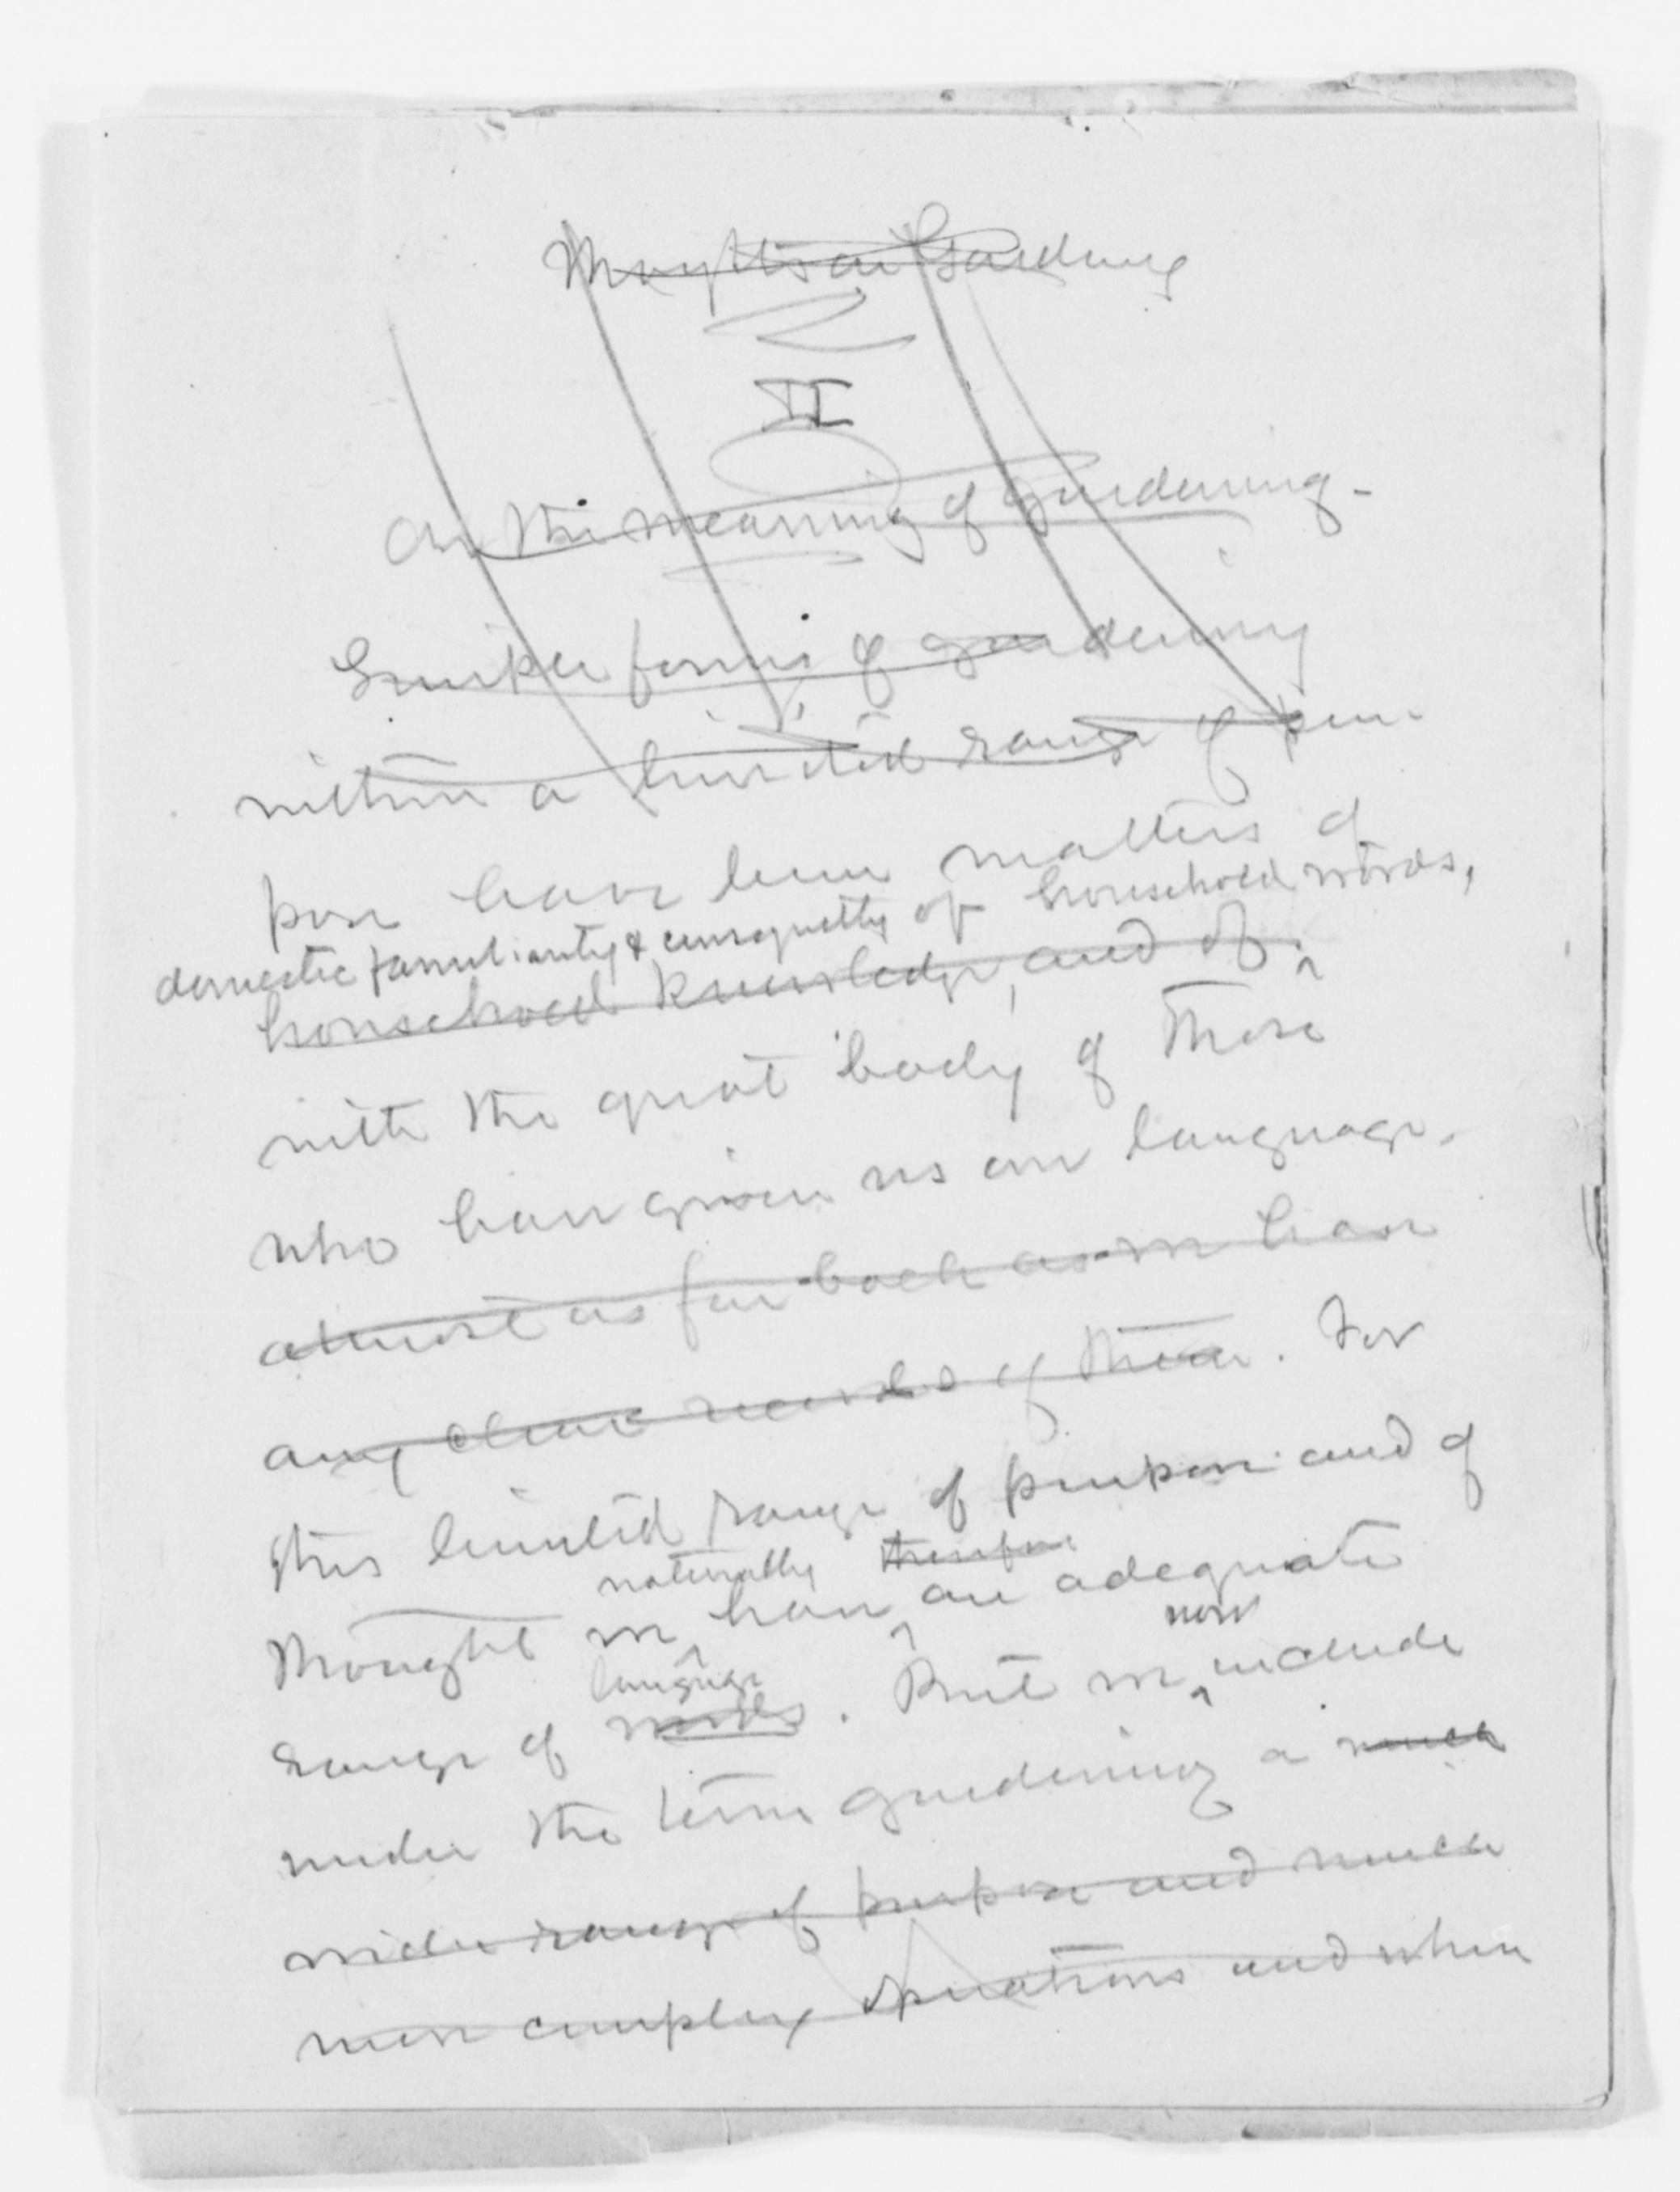 Thoughts on Gardening
II
On the meaning of gardening.
Simpler forms of gardening
within a limited range of pur-
pose have been matters of
domestic familiarity & consequently of household words,
household knowledge, and of
with the great body of those
who have given us our language.
almost as far back as we have
any clear records of them. For
this limited range of purpose and of
naturally therefore
thought we have an adequate
now
language
range of words. But we include
under the term gardening a much
wider range of purpose and much
more complex operations and when